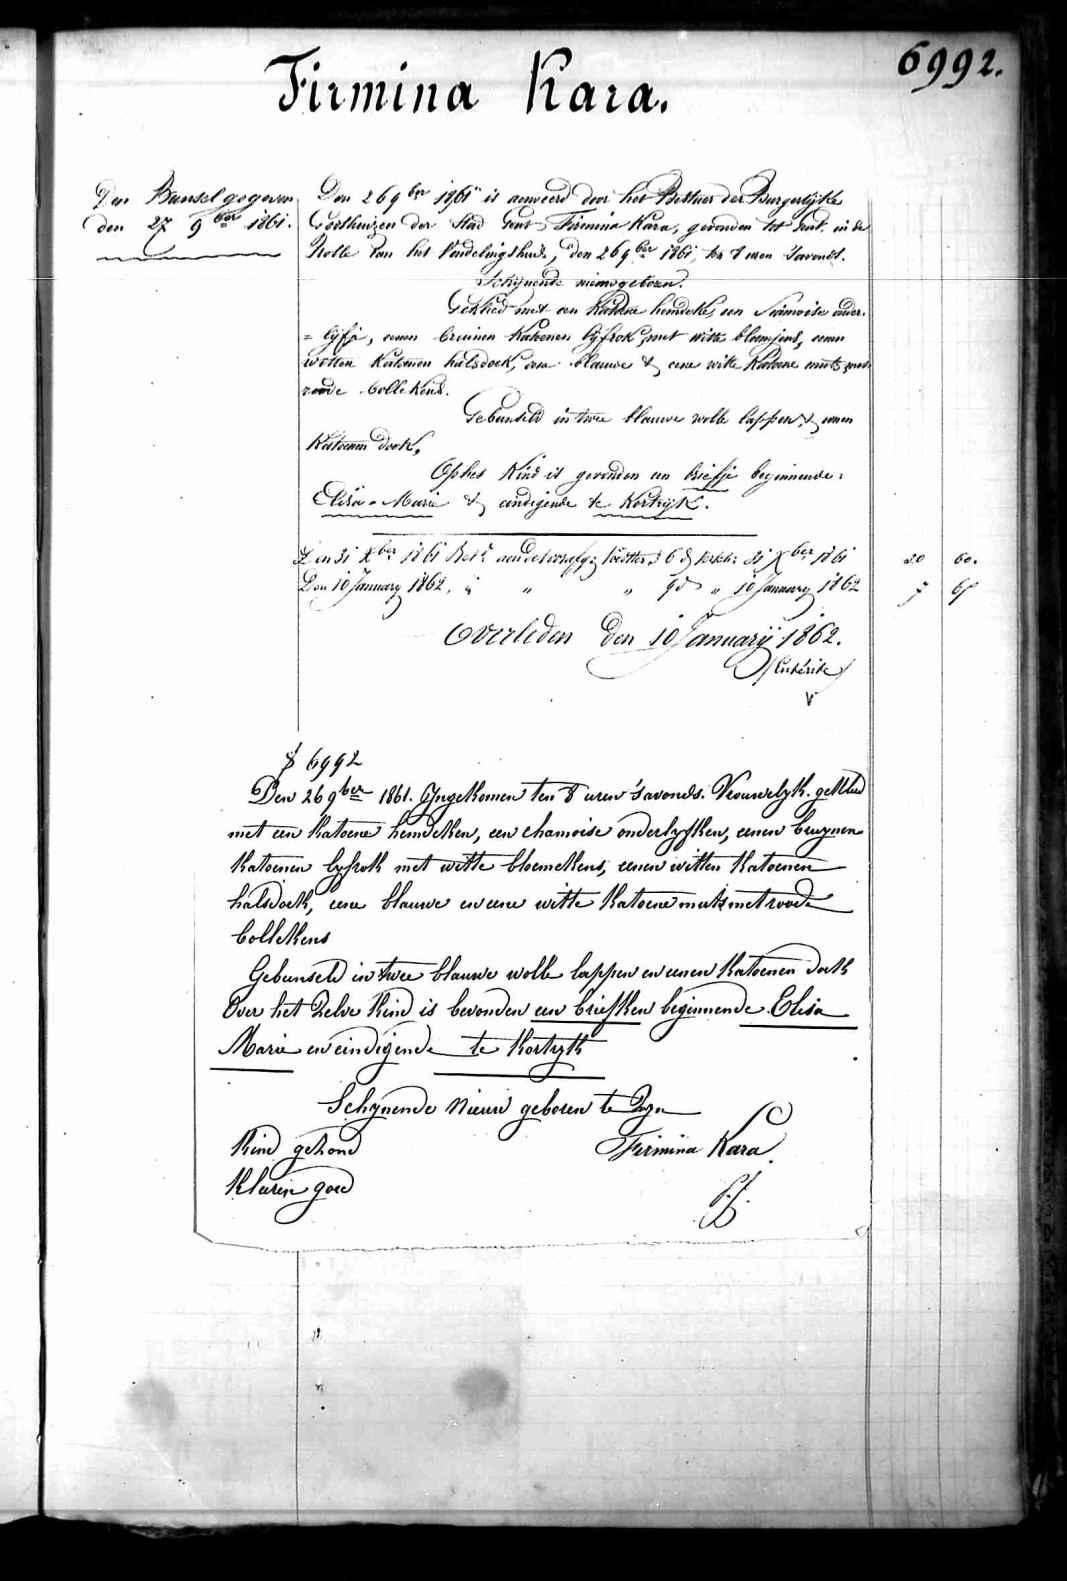 6992.
Firmina Kara.
Den Bunsel gegeven
den 27 9ber 1861.
Den 26 9ber 1861 is aenveerd door het Bestuer der Burgerlyke
Godshuizen der Stad Gent, Firmina Kara, gevonden tot Gent, in de
Rolle van het Vondelingshuis, den 26 9ber 1861, ten 8 uren 's avonds.
Schijnende nieuwgeboren.
Gekleed met een katoene hemdeke, een Siamoise onder-
= lijfje, eenen bruinen katoenen lijfrok, met witte bloemjens, eenen
witten katoenen halsdoek, eene blauwe & eene witte katoene muts met
roode bollekens.
Gebunseld in twee blauwe wolle lappen, & eenen
katoenen doek,
Op het kind is gevonden een briefje beginnende:
Elisa-Marie & eindigende te Kortrijk.
Den 31 Xber 1861 31 Xber 1861 20 60.
Den 10 January 1862, " " " 10 January 1862 7
Overleden den 10 Januarij 1862.
(Entérite)
§ 6992
Den 26 9ber 1861. Ingekomen ten 8 uren 's avonds. Vrouwelyk. gekleed
met een katoene hemdeken, een chamoise onderlyfken, eenen bruynen
katoenen lyfrok met witte bloemekens, eenen witten katoenen
halsdoek, eene blauwe en eene witte katoene muts met roode
bollekens
Gebunseld in twee blauwe wolle lappen en eenen katoenen doek
Over het zelve kind is bevonden een briefken beginnende Elisa
Marie en eindigende te Kortryk
Schynende nieuw geboren te zyn
Kind gezond Firmina Kara
Kleeren goed